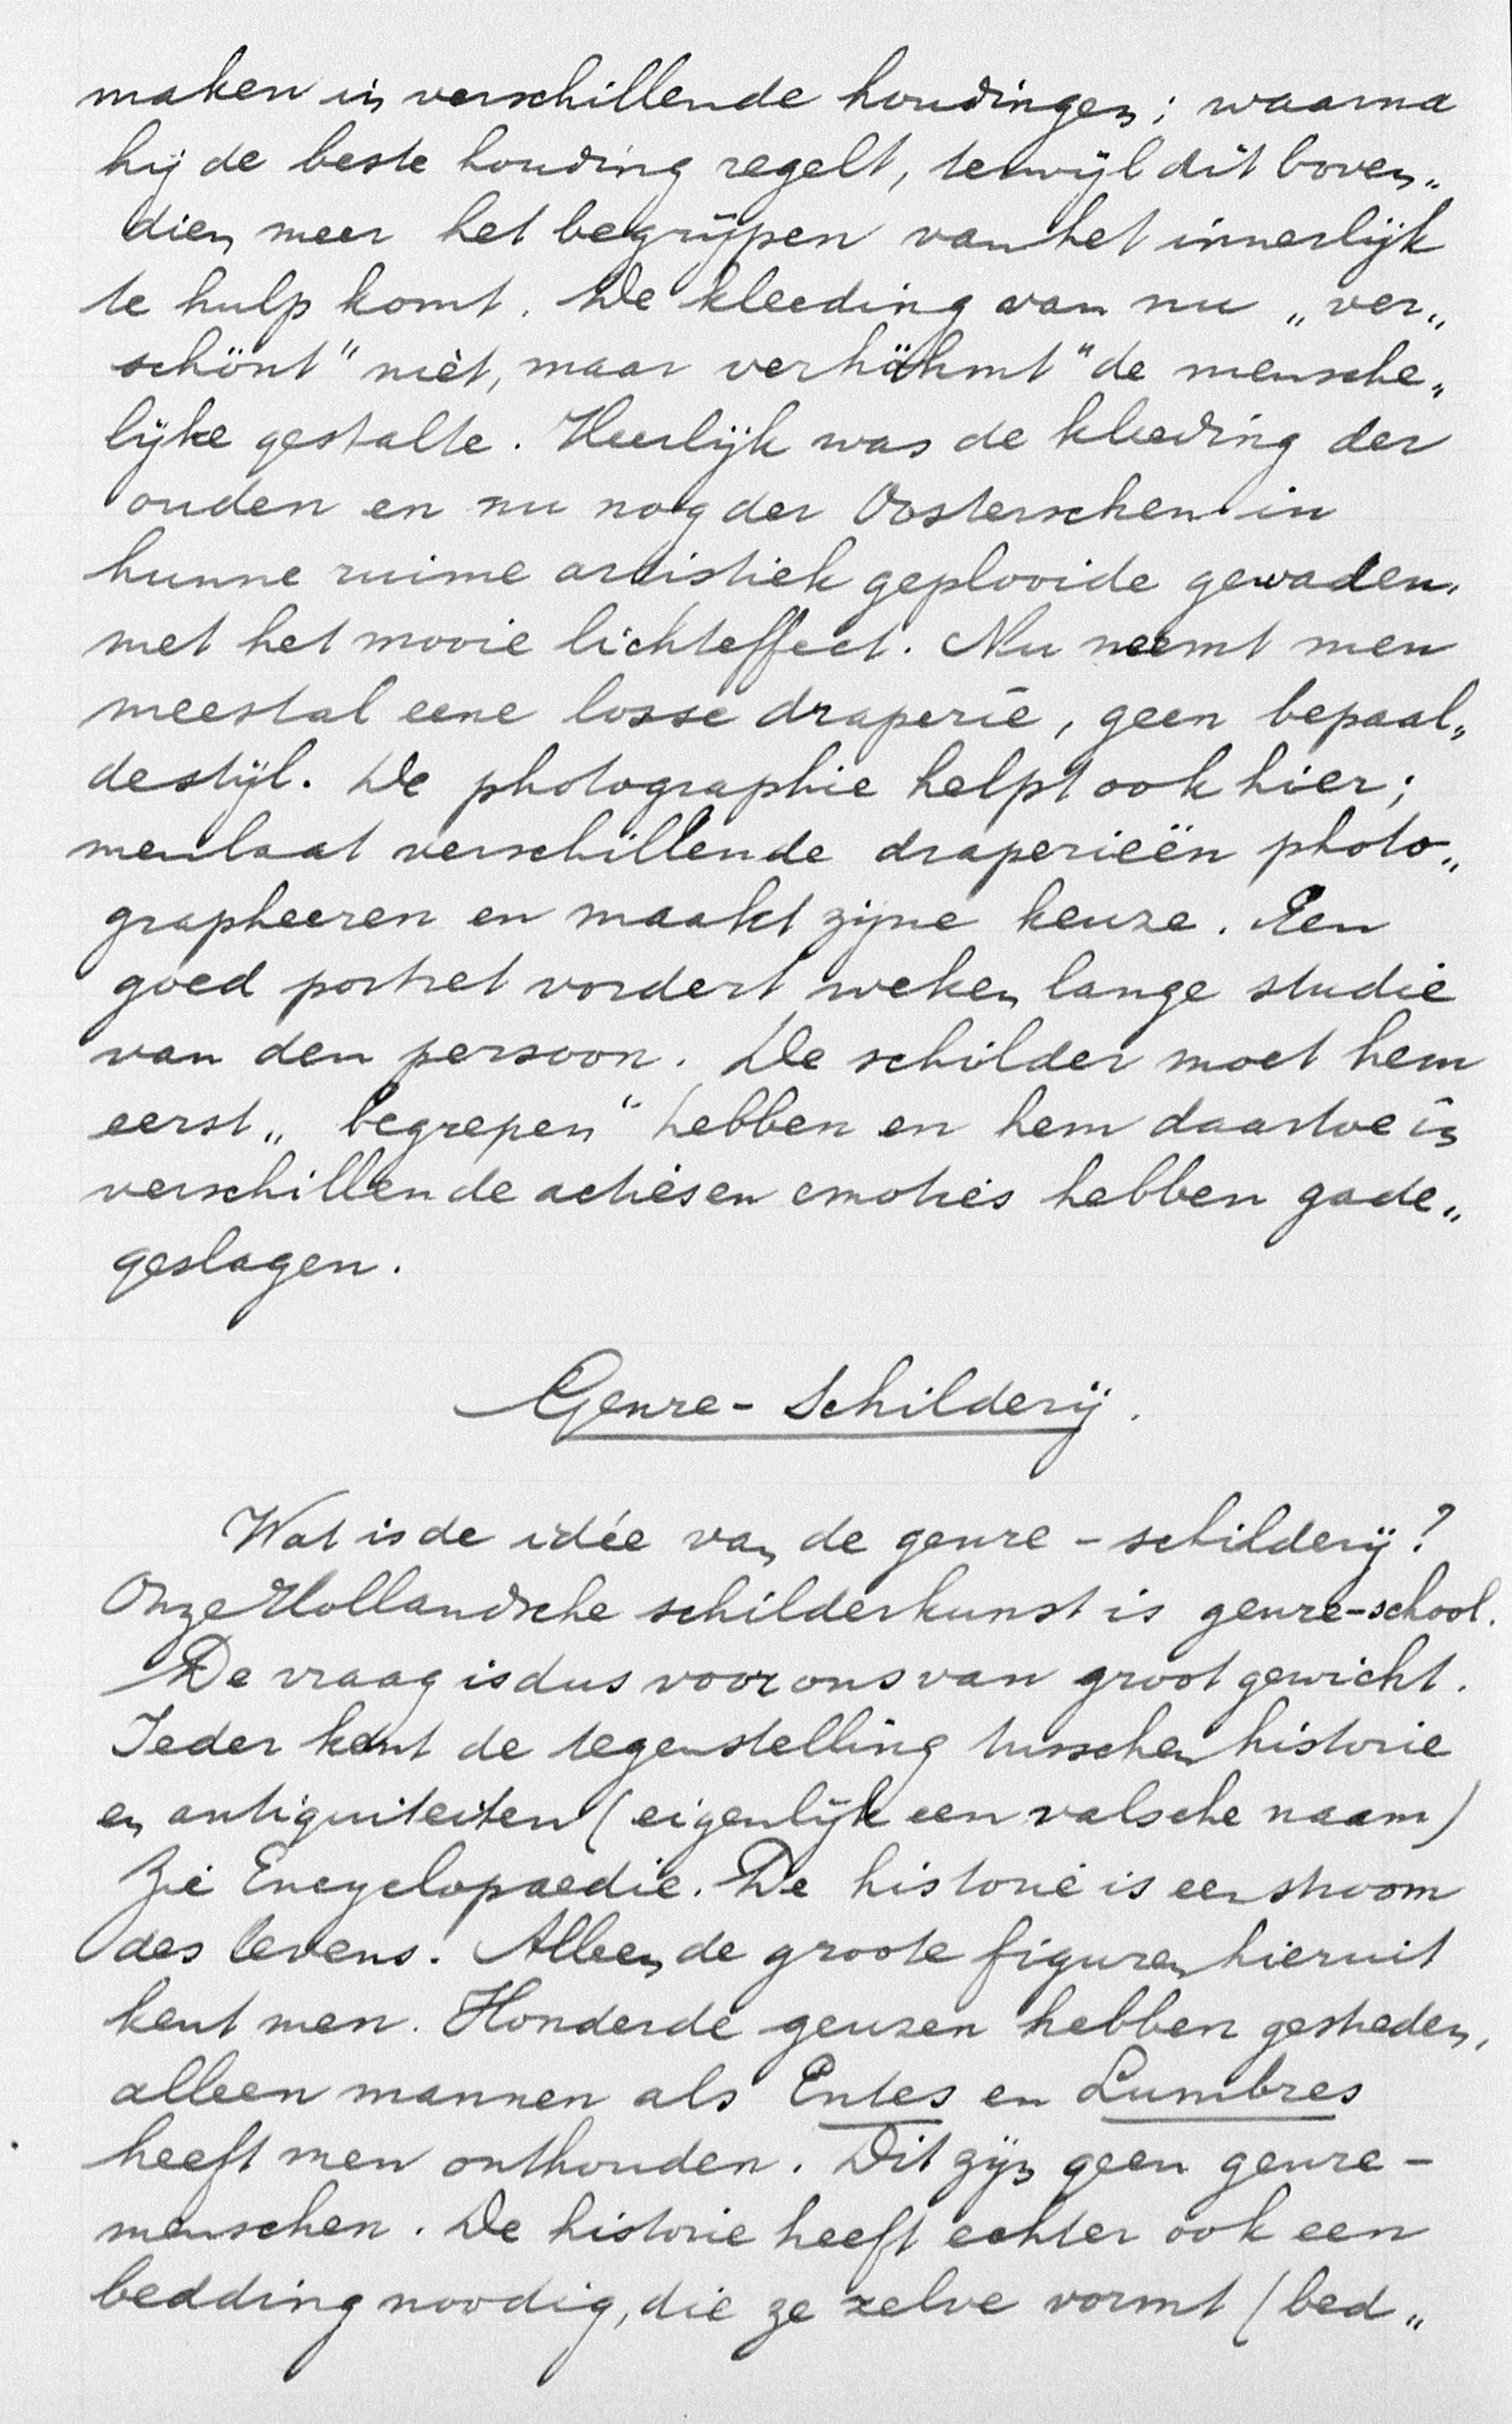 maken in verschillende houdingen; waarna
hij de beste houding regelt, terwijl dit boven„
dien meer het begrijpen van het innerlijk
te hulp komt. De kleeding van nu „ver„
schönt" niet, maar verhähmt" de mensche„
lijke gestalte. Heerlijk was de kleeding der
ouden en nu nog der Oosterschen in
hunne ruime artistiek geplooide gewaden,
met het mooie lichteffect. Nu neemt men
meestal eene losse draperie, geen bepaal„
de stijl. De photographie helpt ook hier;
men laat verschillende draperieën photo„
grapheeren en maakt zijne keuze. Een
goed portret vordert weken lange studie
van den persoon. De schilder moet hem
eerst „begrepen" hebben en hem daartoe in
verschillende acties en emoties hebben gade„
geslagen.
Genre-Schilderij.
Wat is de idée van de genre-schilderij?
Onze Hollandsche schilderkunst is genre-school.
De vraag is dus voor ons van groot gewicht.
Ieder kent de tegenstelling tusschen historie
en antiquiteiten (eigenlijk een valsche naam)
Zie Encyclopaedie. De historie is een stroom
des levens. Alleen de groote figuren hieruit
kent men. Honderde geuzen hebben gestreden,
alleen mannen als Entes en Lumbres
heeft men onthouden. Dit zijn geen genre-
menschen. De historie heeft echter ook een
bedding noodig, die ze zelve vormt (bed„